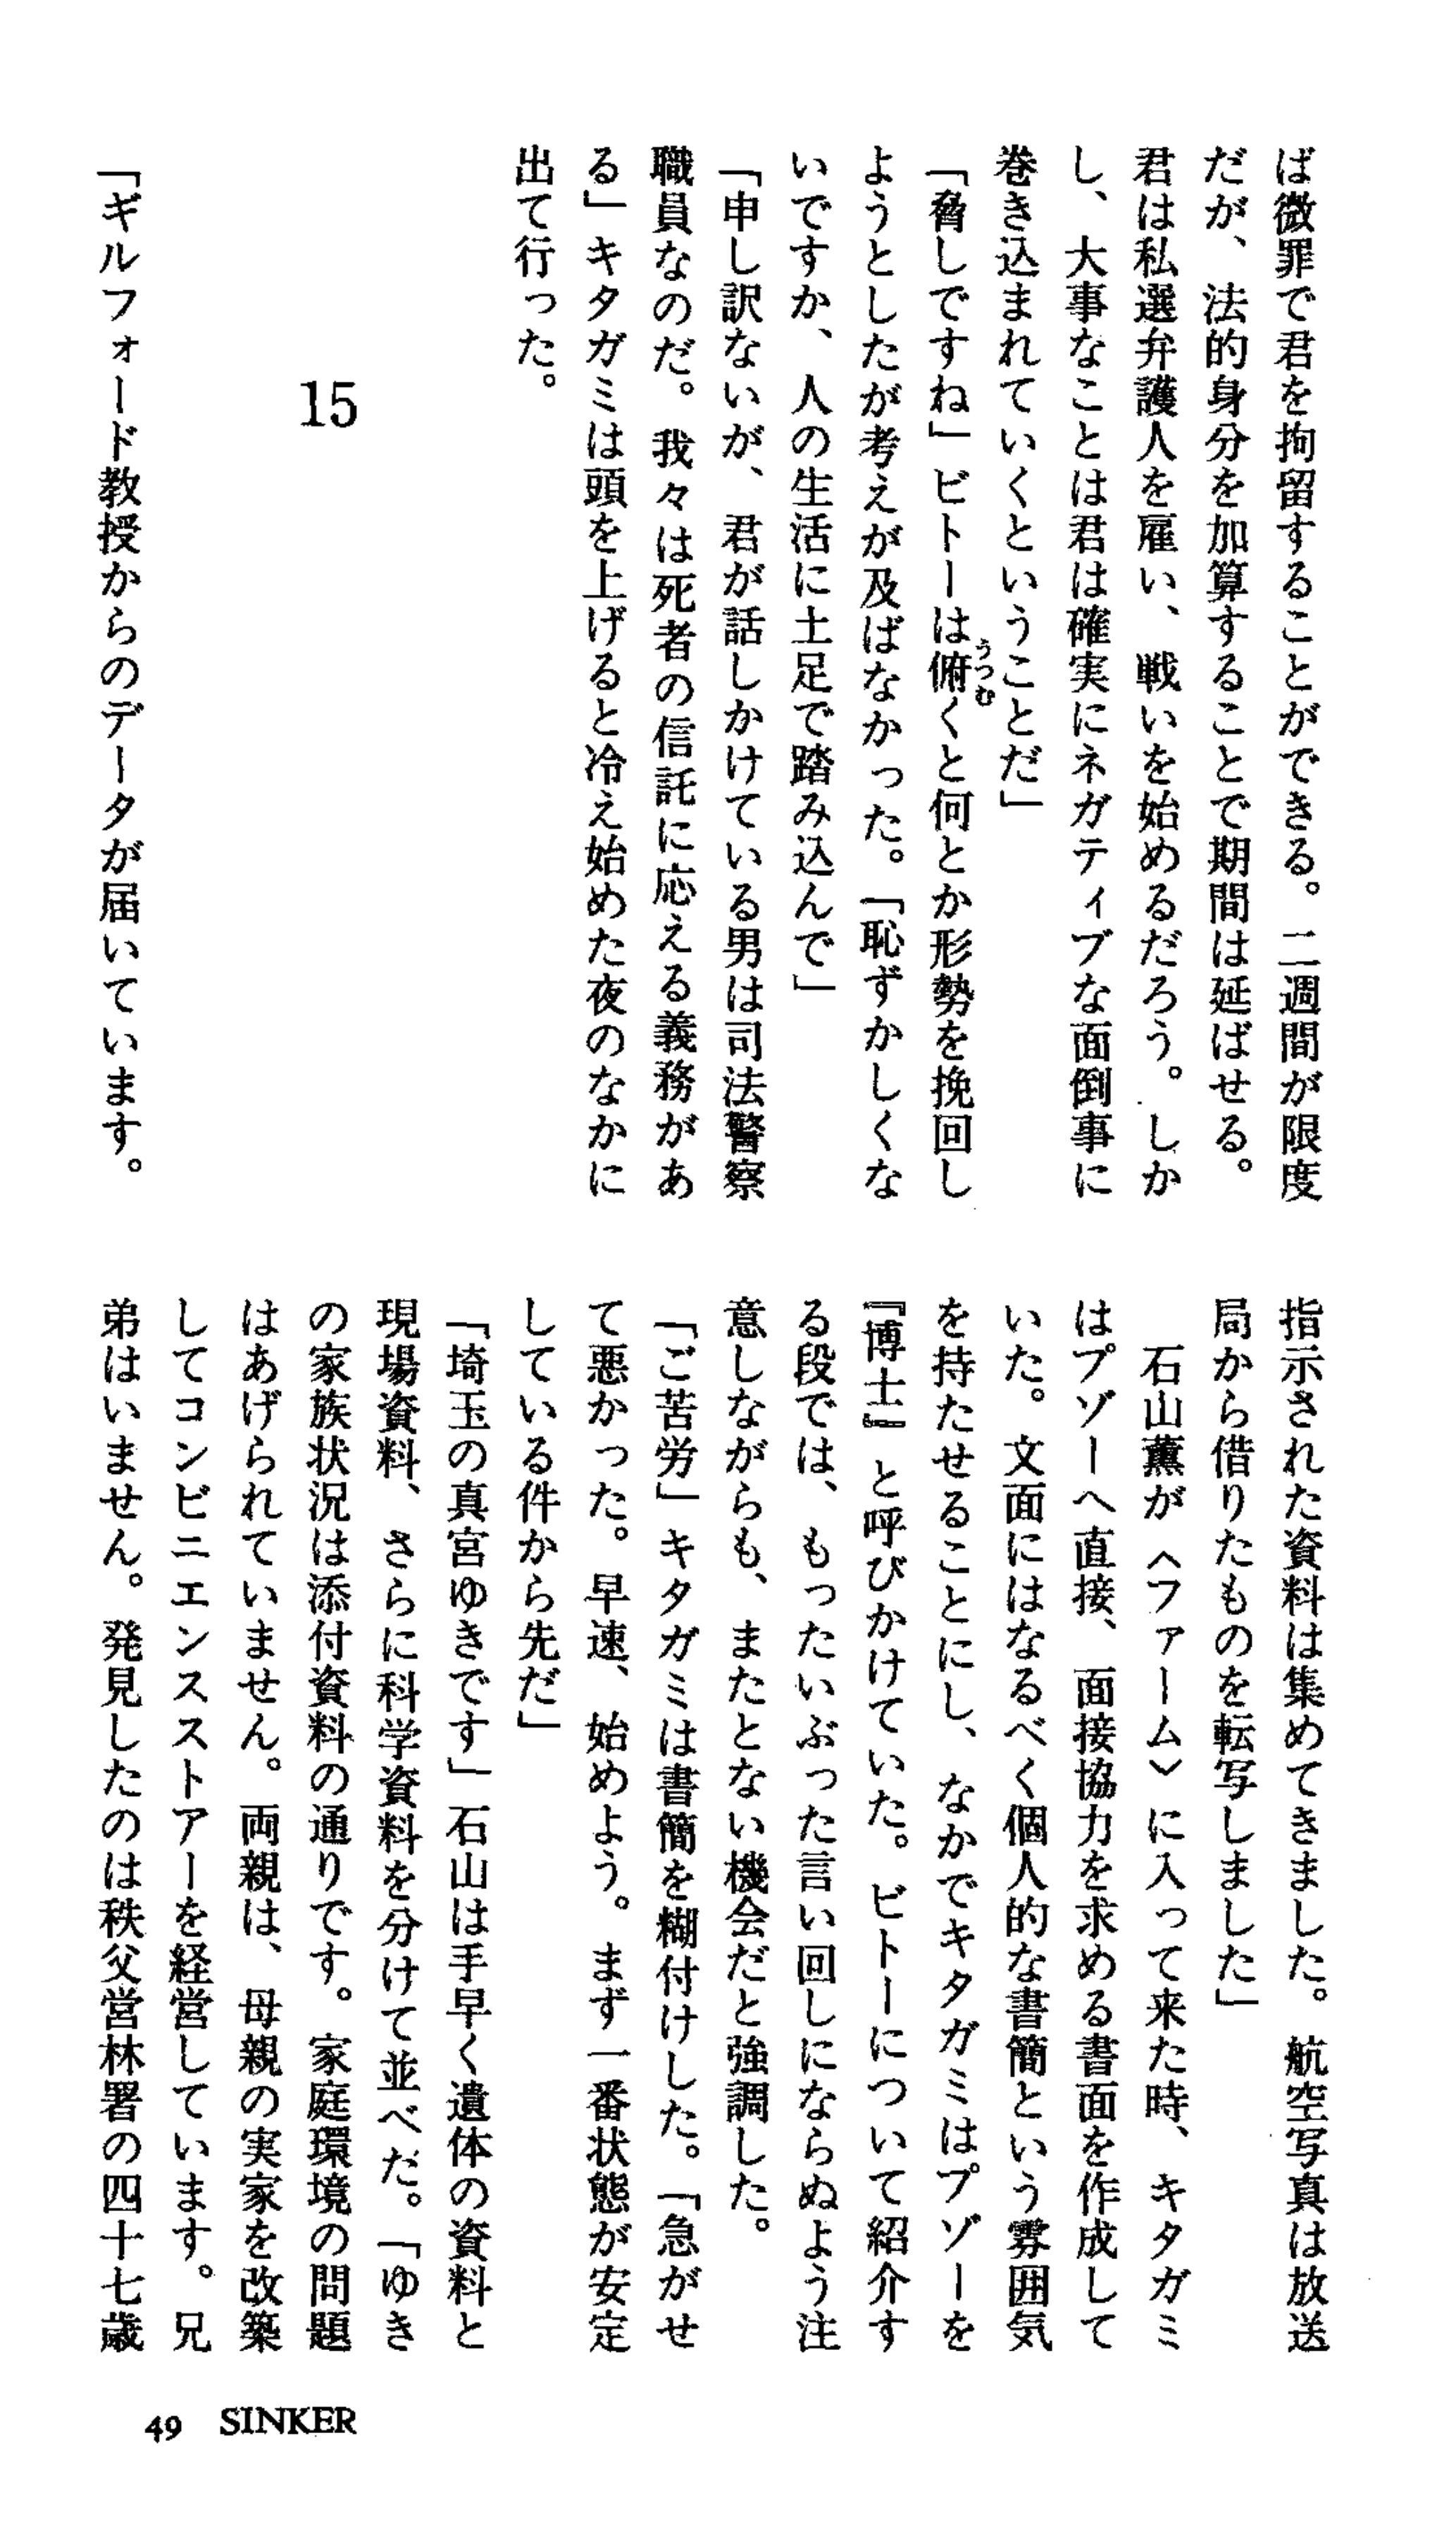 ば微罪で君を拘留することができる。二週間が限度
だが、法的身分を加算することで期間は延ばせる。
君は私選弁護人を雇い、戦いを始めるだろう。しか
し、大事なことは君は確実にネガティブな面倒事に
巻き込まれていくということだ」
「脅しですね」ビトーは俯くと何とか形勢を挽回し
うつむ
ようとしたが考えが及ばなかった。「恥ずかしくな
いですか、人の生活に土足で踏み込んで」
「申し訳ないが、君が話しかけている男は司法警察
職員なのだ。我々は死者の信託に応える義務があ
る」キタガミは頭を上げると冷え始めた夜のなかに
出て行った。
15
「ギルフォード教授からのデータが届いています。
指示された資料は集めてきました。航空写真は放送
局から借りたものを転写しました」
石山薫が〈ファーム〉に入って来た時、キタガミ
はプゾーへ直接、面接協力を求める書面を作成して
いた。文面にはなるべく個人的な書簡という雰囲気
を持たせることにし、なかでキタガミはプゾーを
『博士』と呼びかけていた。ビトーについて紹介す
る段では、もったいぶった言い回しにならぬよう注
意しながらも、またとない機会だと強調した。
「ご苦労」キタガミは書簡を糊付けした。「急がせ
て悪かった。早速、始めよう。まず一番状態が安定
している件から先だ」
「埼玉の真宮ゆきです」石山は手早く遺体の資料と
現場資料、さらに科学資料を分けて並べだ。「ゆき
の家族状況は添付資料の通りです。家庭環境の問題
はあげられていません。両親は、母親の実家を改築
してコンビニエンスストアーを経営しています。兄
弟はいません。発見したのは秩父営林署の四十七歳
49 SINKER